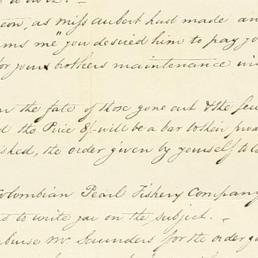 eon, as miss aubert had made an
ms me" you desired him to pay yo
for your brothers maintenance
the fate of those gone out & the
the Price &c will be a bar to their
shed, the order given by yourself
Colombian Pearl Fishery Company
to write you on the subject. -
Mr Saunders for the order g